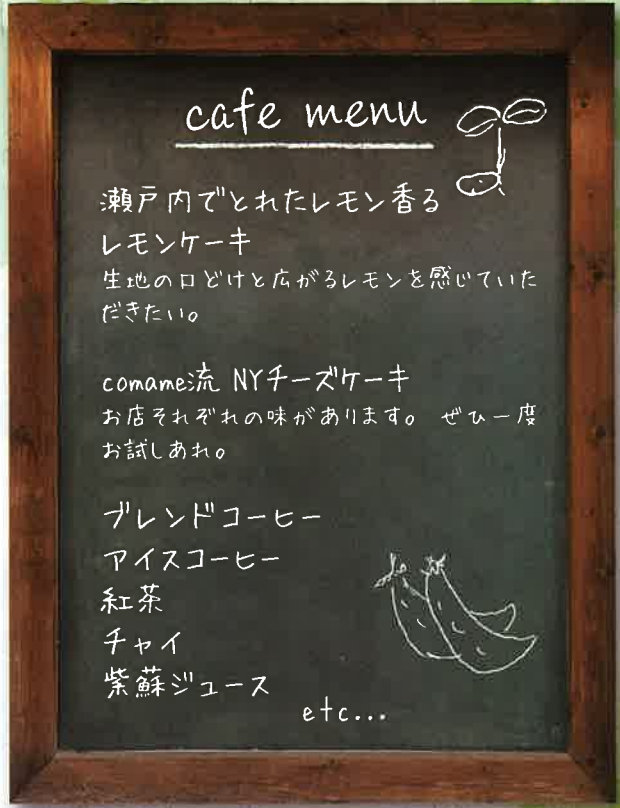 cafe menu
瀬戸内でとれたレモン香る
レモンケーキ
生地の口どけと広がるレモンを感じていた
だきたい。
comame流 NYチーズケーキ
お店それぞれの味があります。 ぜひ一度
お試しあれ。
ブレンドコーヒー
アイスコーヒー
紅茶
チャイ
紫蘇ジュース
etc...